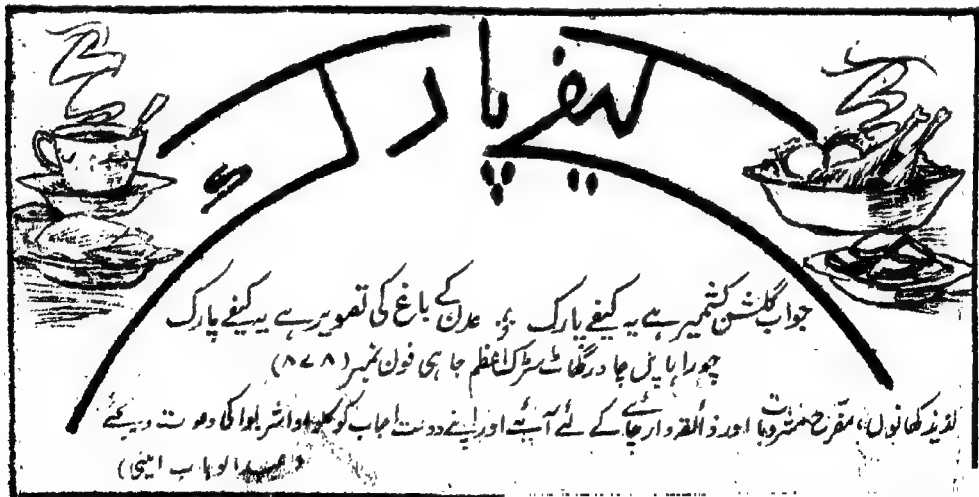 کیفے پارک
جواب گلشن کشمیر ہے یہ کیفے پارک ؛ عدن کے باغ کی تصویر ہے یہ کیفے پارک
چوراہا پل چادر گھاٹ سڑک اعظم جاہی فون نمبر (۸۷۸)
لذیذ کھانوں، مفرح مشروبات اور ذائقہ دار چائے کے لئے آیئے اور اپنے دوست احباب کو کلوا واشربوا کی دعوت دیجئے
(عبدالوہاب امینی)